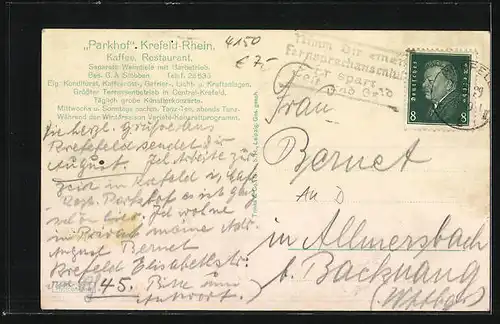 „Parkhof“, Krefeld-Rhein.
Kaffee, Restaurant.
Separate Weindiele mit Barbetrieb.
Bes. G. & Sibben Telef. 26530
Eig. Konditorei, Kaffeerösterei, Gefrier-, Licht- u. Kraftanlagen.
Größter Terrassenbetrieb in Central-Krefeld.
Täglich große Künstlerkonzerte.
Mittwochs u. Sonntags nachm. Tanz-Tee, abends Tanz.
Während der Wintersaison Varieté-Kabarettprogramm.
4150
€ 7,-
Nimm Dir einen
Fernsprechanschluß
Er spart
Zeit und Geld
Deutsches Reich
8 8
Die herzl. Grüße aus
Krefeld sendet Dir
August. Ich Arbeite zur
Zeit in Krefeld i. Café
Rest. Parkhof es ist ganz
schön hier. Ich wohne
im Privat meine Adr.
August Bernet
Krefeld Elisabethstr.
45. Bitte um
Antwort.
Frau
Bernet
An D
in Allmersbach
b. Backnang
(Wttbg.)